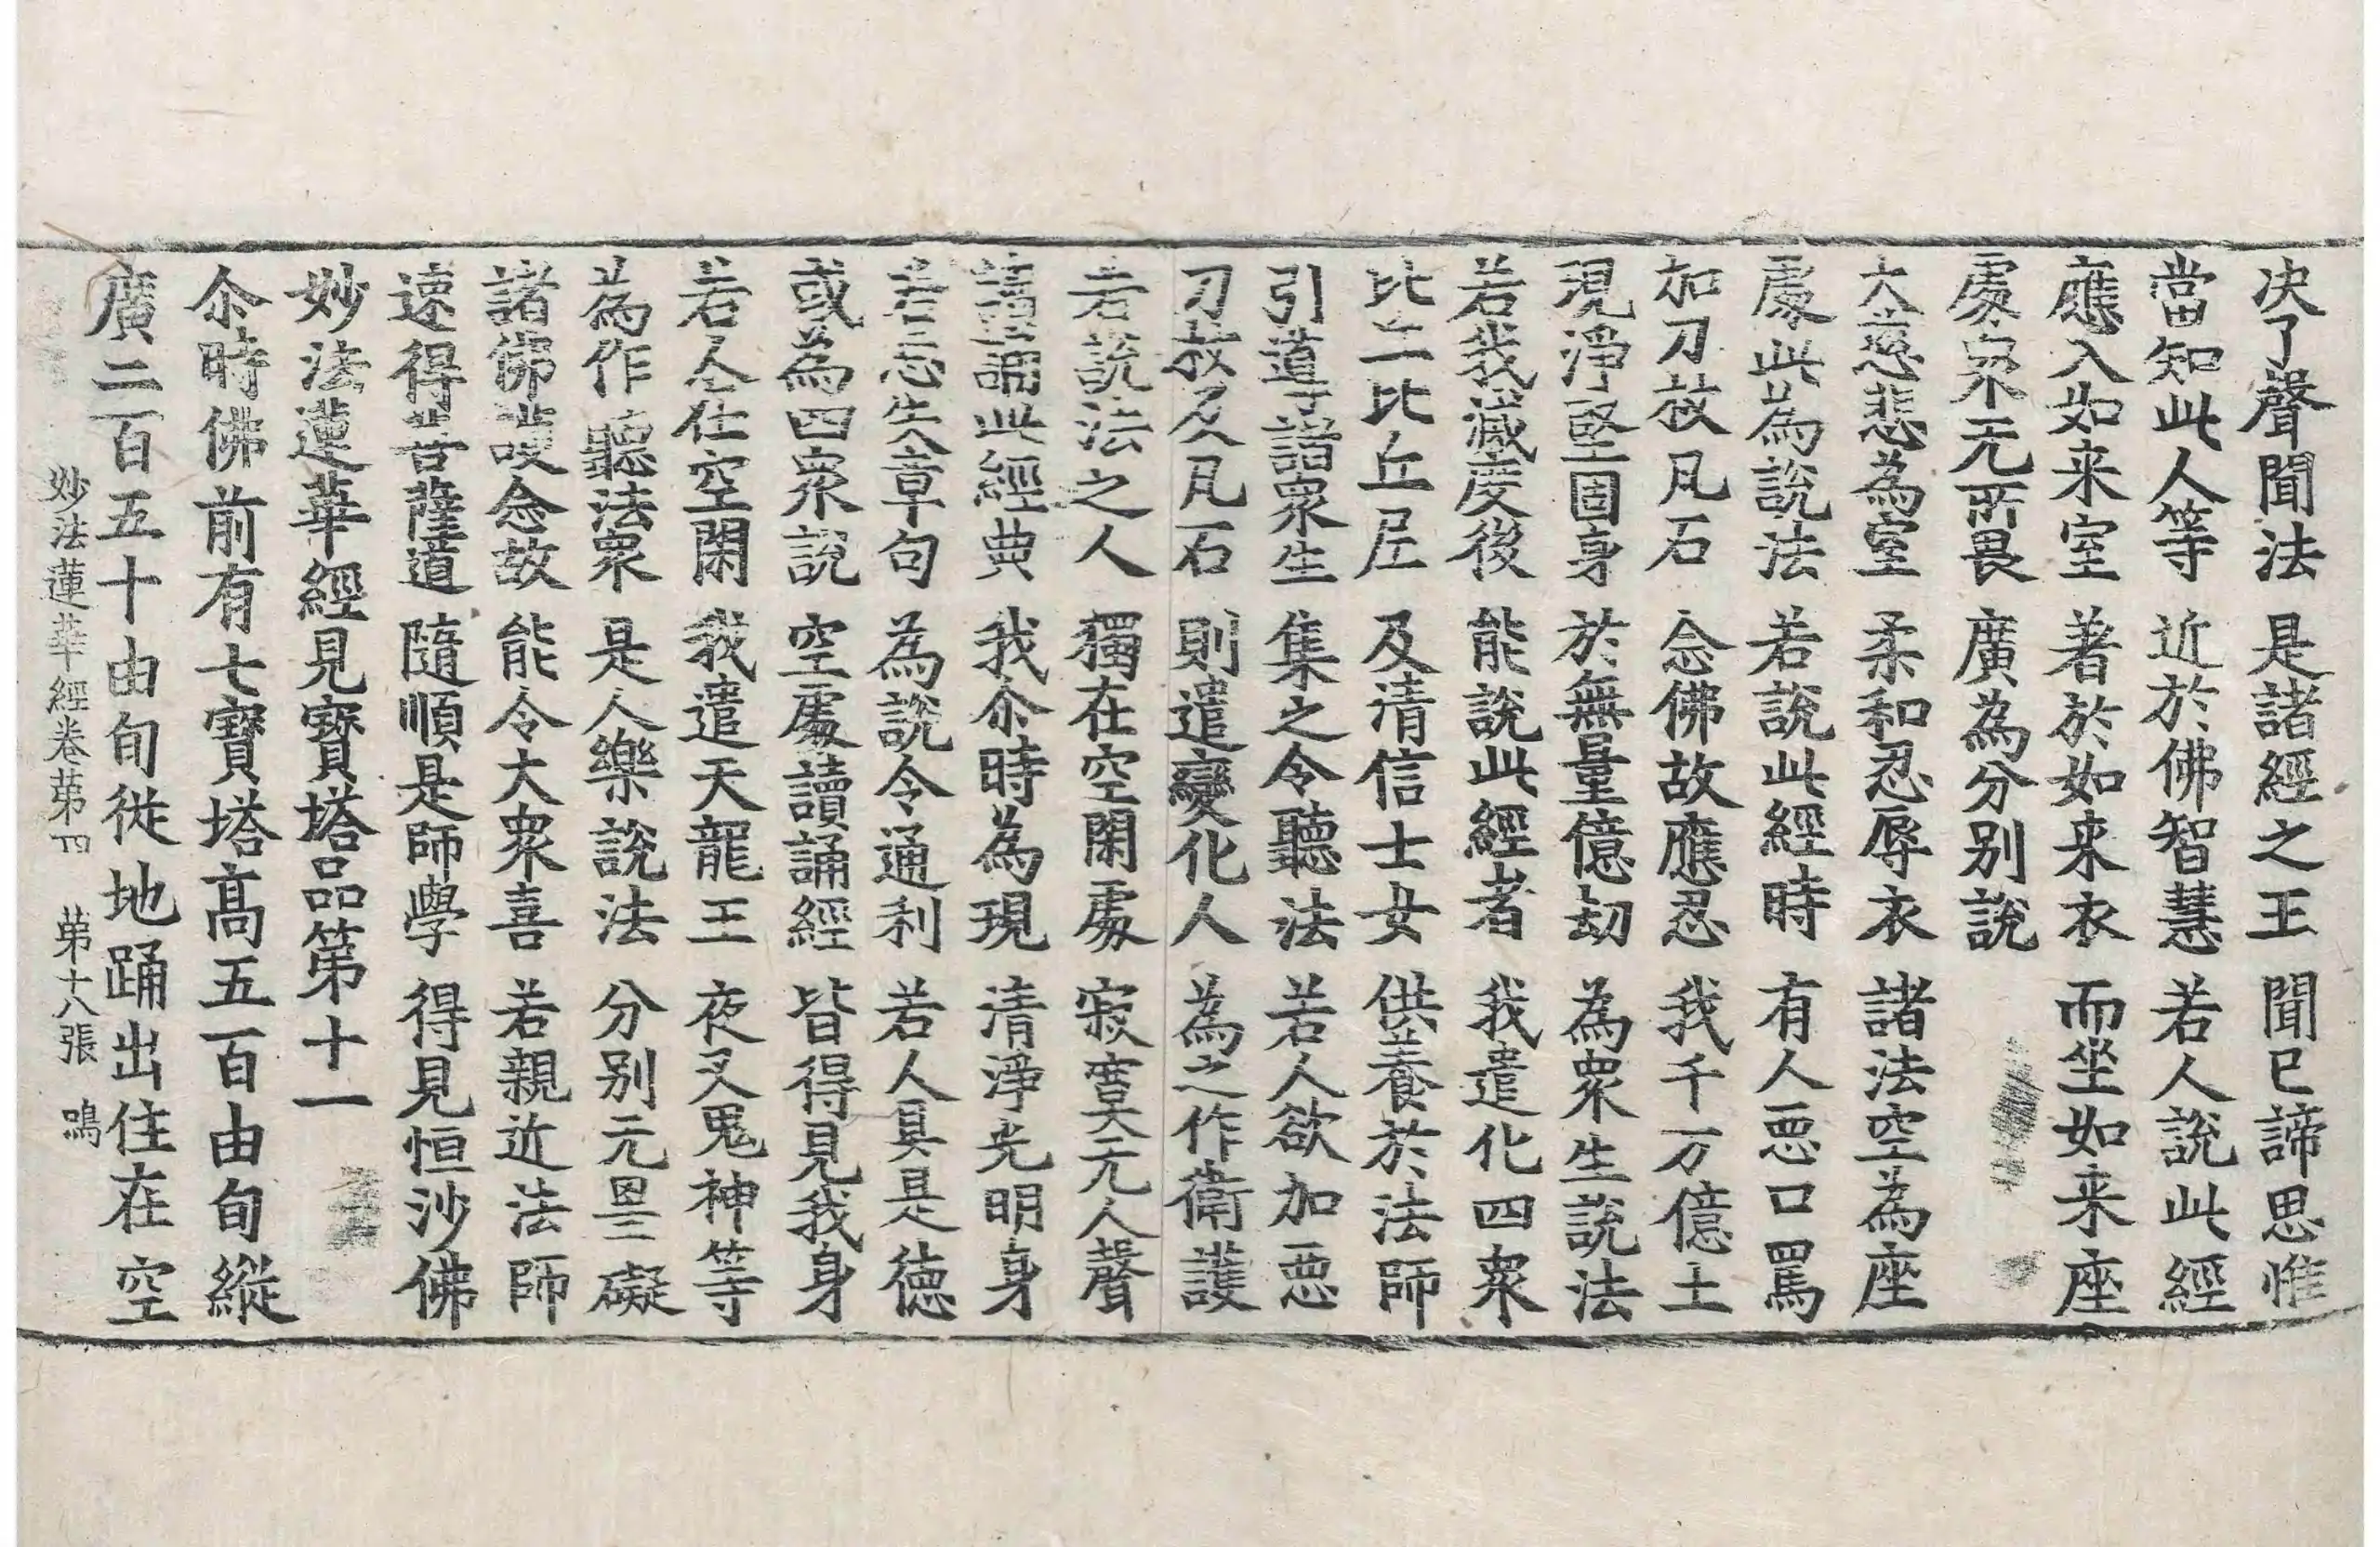 决了聲聞法 是諸經之王 聞已諦思惟
當知此人等 近於佛智慧 若人說此經
應入如来室 著於如来衣 而坐如来座
處衆无所畏 廣為分别說
大慈悲為室 柔和忍辱衣 諸法空為座
處此為說法 若說此經時 有人惡口罵
加刀杖凡石 念佛故應忍 我千万億土
現淨堅固身 於無量億劫 為衆生說法
若我滅度後 能說此經者 我遣化四衆
比丘比丘尼 及清信士女 供養於法師
引導諸衆生 集之令聽法 若人欲加惡
刀杖及凡石 則遣變化人 為之作衛護
若說法之人 獨在空閑處 寂寞无人聲
讀誦此經典 我尒時為現 清淨光明身
若忘失章句 為說令通利 若人具是德
或為四衆說 空處讀誦經 皆得見我身
若人在空閑 我遣天龍王 夜叉鬼神等
為作聽法衆 是人樂說法 分别无罣礙
諸佛護念故 能令大衆喜 若親近法師
速得菩薩道 隨順是師學 得見恒沙佛
妙法蓮華經見寳塔品第十一
尒時佛前有七寳塔髙五百由旬縱
廣二百五十由旬從地踊出住在空
妙法蓮華經卷苐四 苐十八張 鳴